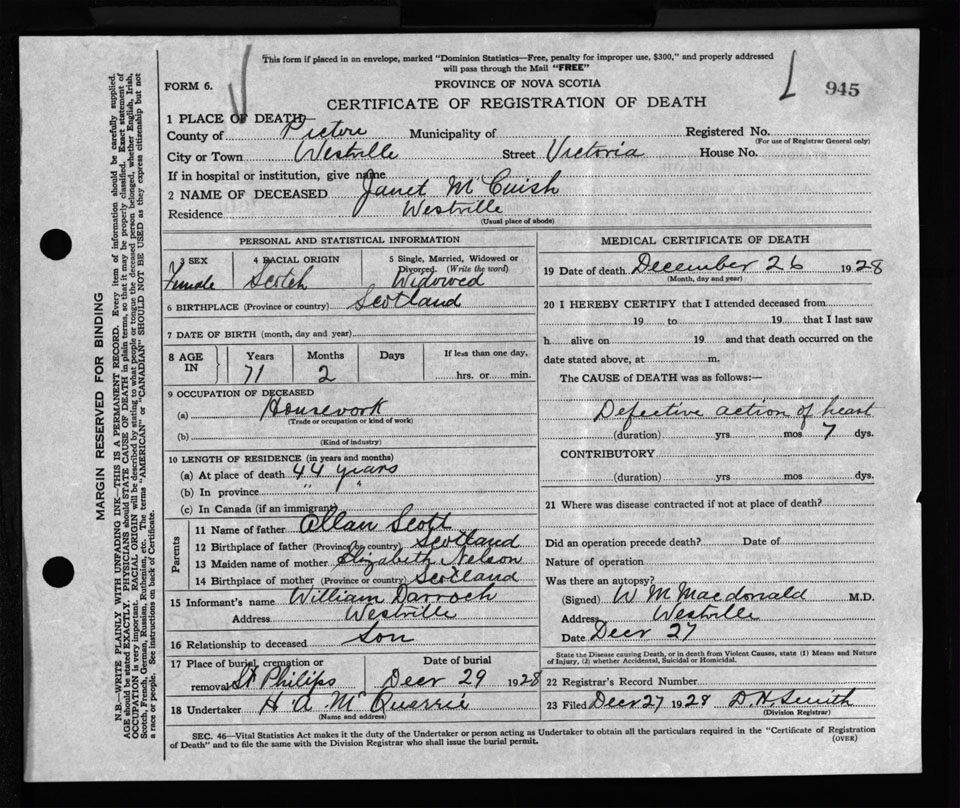 This form if placed in an envelope, marked "Dominion Statistics—Free, penalty for improper use, $300," and properly addressed
will pass through the Mail "FREE"
FORM 6.
PROVINCE OF NOVA SCOTIA
945
CERTIFICATE OF REGISTRATION OF DEATH
1 PLACE OF DEATH—
County of Pictou Municipality of Registered No.
(For use of Registrar General only)
City or Town Westville Street Victoria House No.
If in hospital or institution, give name
2 NAME OF DECEASED Janet McCuish
Residence Westville
(Usual place of abode)
PERSONAL AND STATISTICAL INFORMATION
3 SEX 4 RACIAL ORIGIN 5 Single, Married, Widowed or
Divorced. (Write the word)
Female Scotch Widowed
6 BIRTHPLACE (Province or country) Scotland
7 DATE OF BIRTH (month, day and year)
8 AGE IN Years Months Days If less than one day,
71 2 hrs. or min.
9 OCCUPATION OF DECEASED
(a) Housework
(Trade or occupation or kind of work)
(b)
(Kind of industry)
10 LENGTH OF RESIDENCE (in years and months)
(a) At place of death 44 years
(b) In province " "
(c) In Canada (if an immigrant)
Parents
11 Name of father Allan Scott
12 Birthplace of father (Province or country) Scotland
13 Maiden name of mother Elizabeth Nelson
14 Birthplace of mother (Province or country) Scotland
15 Informant's name William Darroch
Address Westville
16 Relationship to deceased Son
17 Place of burial, cremation or Date of burial
removal St Philips Decr 29 1928
18 Undertaker H A McQuarrie
(Name and address)
MEDICAL CERTIFICATE OF DEATH
19 Date of death December 26 1928
(Month, day and year)
20 I HEREBY CERTIFY that I attended deceased from
19 to 19 that I last saw
h alive on 19 and that death occurred on the
date stated above, at m.
The CAUSE of DEATH was as follows:—
Defective action of heart
(duration) yrs mos 7 dys.
CONTRIBUTORY
(duration) yrs mos dys.
21 Where was disease contracted if not at place of death?
Did an operation precede death? Date of
Nature of operation
Was there an autopsy?
(Signed) W M Macdonald M.D.
Address Westville
Date Decr 27
State the Disease causing Death, or in death from Violent Causes, state (1) Means and Nature
of Injury, (2) whether Accidental, Suicidal or Homicidal.
22 Registrar's Record Number
23 Filed Decr 27 1928 D. H. Smith
(Division Registrar)
SEC. 46—Vital Statistics Act makes it the duty of the Undertaker or person acting as Undertaker to obtain all the particulars required in the "Certificate of Registration
of Death" and to file the same with the Division Registrar who shall issue the burial permit.
(OVER)
MARGIN RESERVED FOR BINDING
N.B.—WRITE PLAINLY WITH UNFADING INK—THIS IS A PERMANENT RECORD. Every item of information should be carefully supplied.
AGE should be stated EXACTLY. PHYSICIANS should STATE CAUSE OF DEATH in plain terms, so that it may be properly classified. Exact statement of
OCCUPATION is very important. RACIAL ORIGIN will be described by stating to what people or tongue the deceased person belonged, whether English, Irish,
Scotch, French, German, Russian, Ruthenian, etc. The terms "AMERICAN" or "CANADIAN" SHOULD NOT BE USED as they express citizenship but not
a race or people. See instructions on back of Certificate.